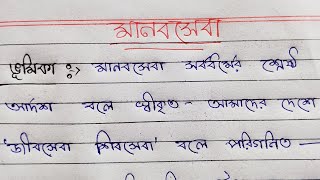 মানবসেবা
ভূমিকা :> মানবসেবা সর্বধর্মের শ্রেষ্ঠ
আদর্শ বলে স্বীকৃত - আমাদের দেশে
'জীবসেবা শিবসেবা' বলে পরিগনিত —